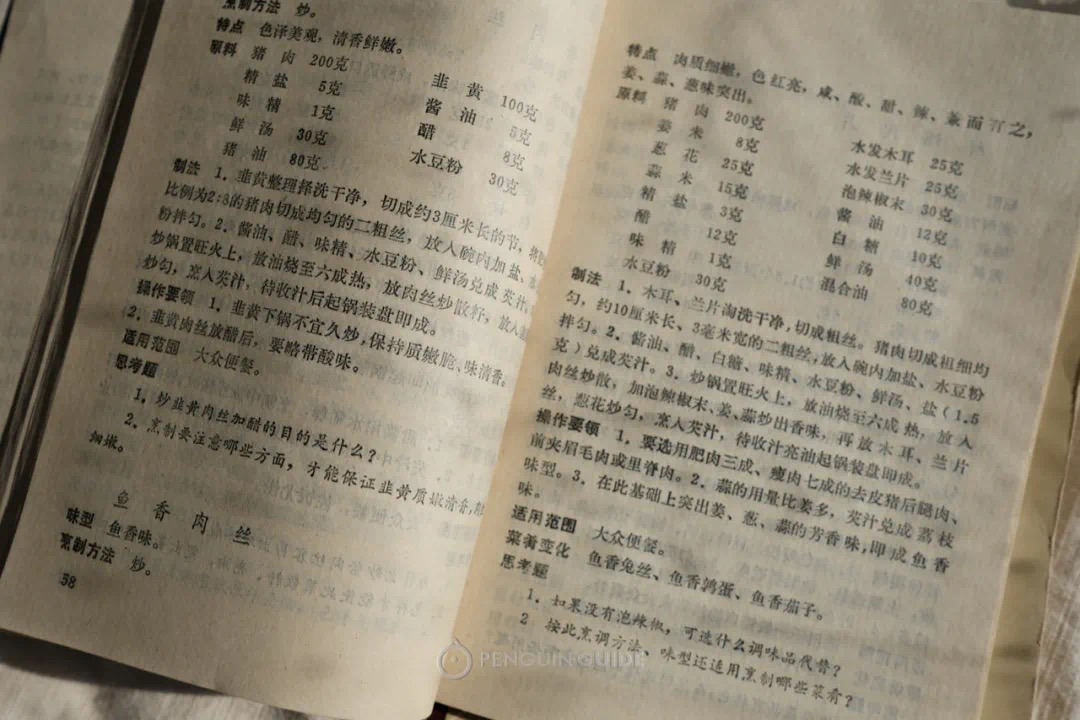 烹制方法 炒。
特点 色泽美观，清香鲜嫩。
原料 猪肉 200克 韭黄 100克
精盐 5克 酱油 5克
味精 1克 醋 8克
鲜汤 30克 水豆粉 30克
猪油 80克
制法 1．韭黄整理择洗干净，切成约3厘米长的节，
比例为2:8的猪肉切成均匀的二粗丝，放入碗内加盐、水
粉拌匀。2．酱油、醋、味精、水豆粉、鲜汤兑成芡汁，
炒锅置旺火上，放油烧至六成热，放肉丝炒散籽，放入
炒匀，烹入芡汁，待收汁后起锅装盘即成。
操作要领 1．韭黄下锅不宜久炒，保持质嫩脆、味清香。
2．韭黄肉丝放醋后，要略带酸味。
适用范围 大众便餐。
思考题
1．炒韭黄肉丝加醋的目的是什么？
2．烹制要注意哪些方面，才能保证韭黄质嫩清香，
细嫩。
鱼香肉丝
味型 鱼香味。
烹制方法 炒。
58
特点 肉质细嫩，色红亮，咸、酸、甜、辣、兼而有之，
姜、蒜、葱味突出。
原料 猪肉 200克 水发木耳 25克
姜米 8克 水发兰片 25克
葱花 25克 泡辣椒末 30克
蒜米 15克 酱油 12克
精盐 3克 白糖 10克
醋 12克 鲜汤 40克
味精 1克 混合油 80克
水豆粉 30克
制法 1．木耳、兰片淘洗干净，切成粗丝。猪肉切成粗细均
匀，约10厘米长、3毫米宽的二粗丝，放入碗内加盐、水豆粉
拌匀。2．酱油、醋、白糖、味精、水豆粉、鲜汤、盐（1.5
克）兑成芡汁。3．炒锅置旺火上，放油烧至六成热，放入
肉丝炒散，加泡辣椒末、姜、蒜炒出香味，再放木耳、兰片
丝，葱花炒匀，烹入芡汁，待收汁亮油起锅装盘即成。
操作要领 1．要选用肥肉三成、瘦肉七成的去皮猪后腿肉、
前夹眉毛肉或里脊肉。2．蒜的用量比姜多，芡汁兑成荔枝
味型。3．在此基础上突出姜、葱、蒜的芳香味，即成鱼香
味。
适用范围 大众便餐。
菜肴变化 鱼香兔丝、鱼香鹑蛋、鱼香茄子。
思考题
1．如果没有泡辣椒，可选什么调味品代替？
2 按此烹调方法、味型还适用烹制哪些菜肴？
PENGUIN GUIDE